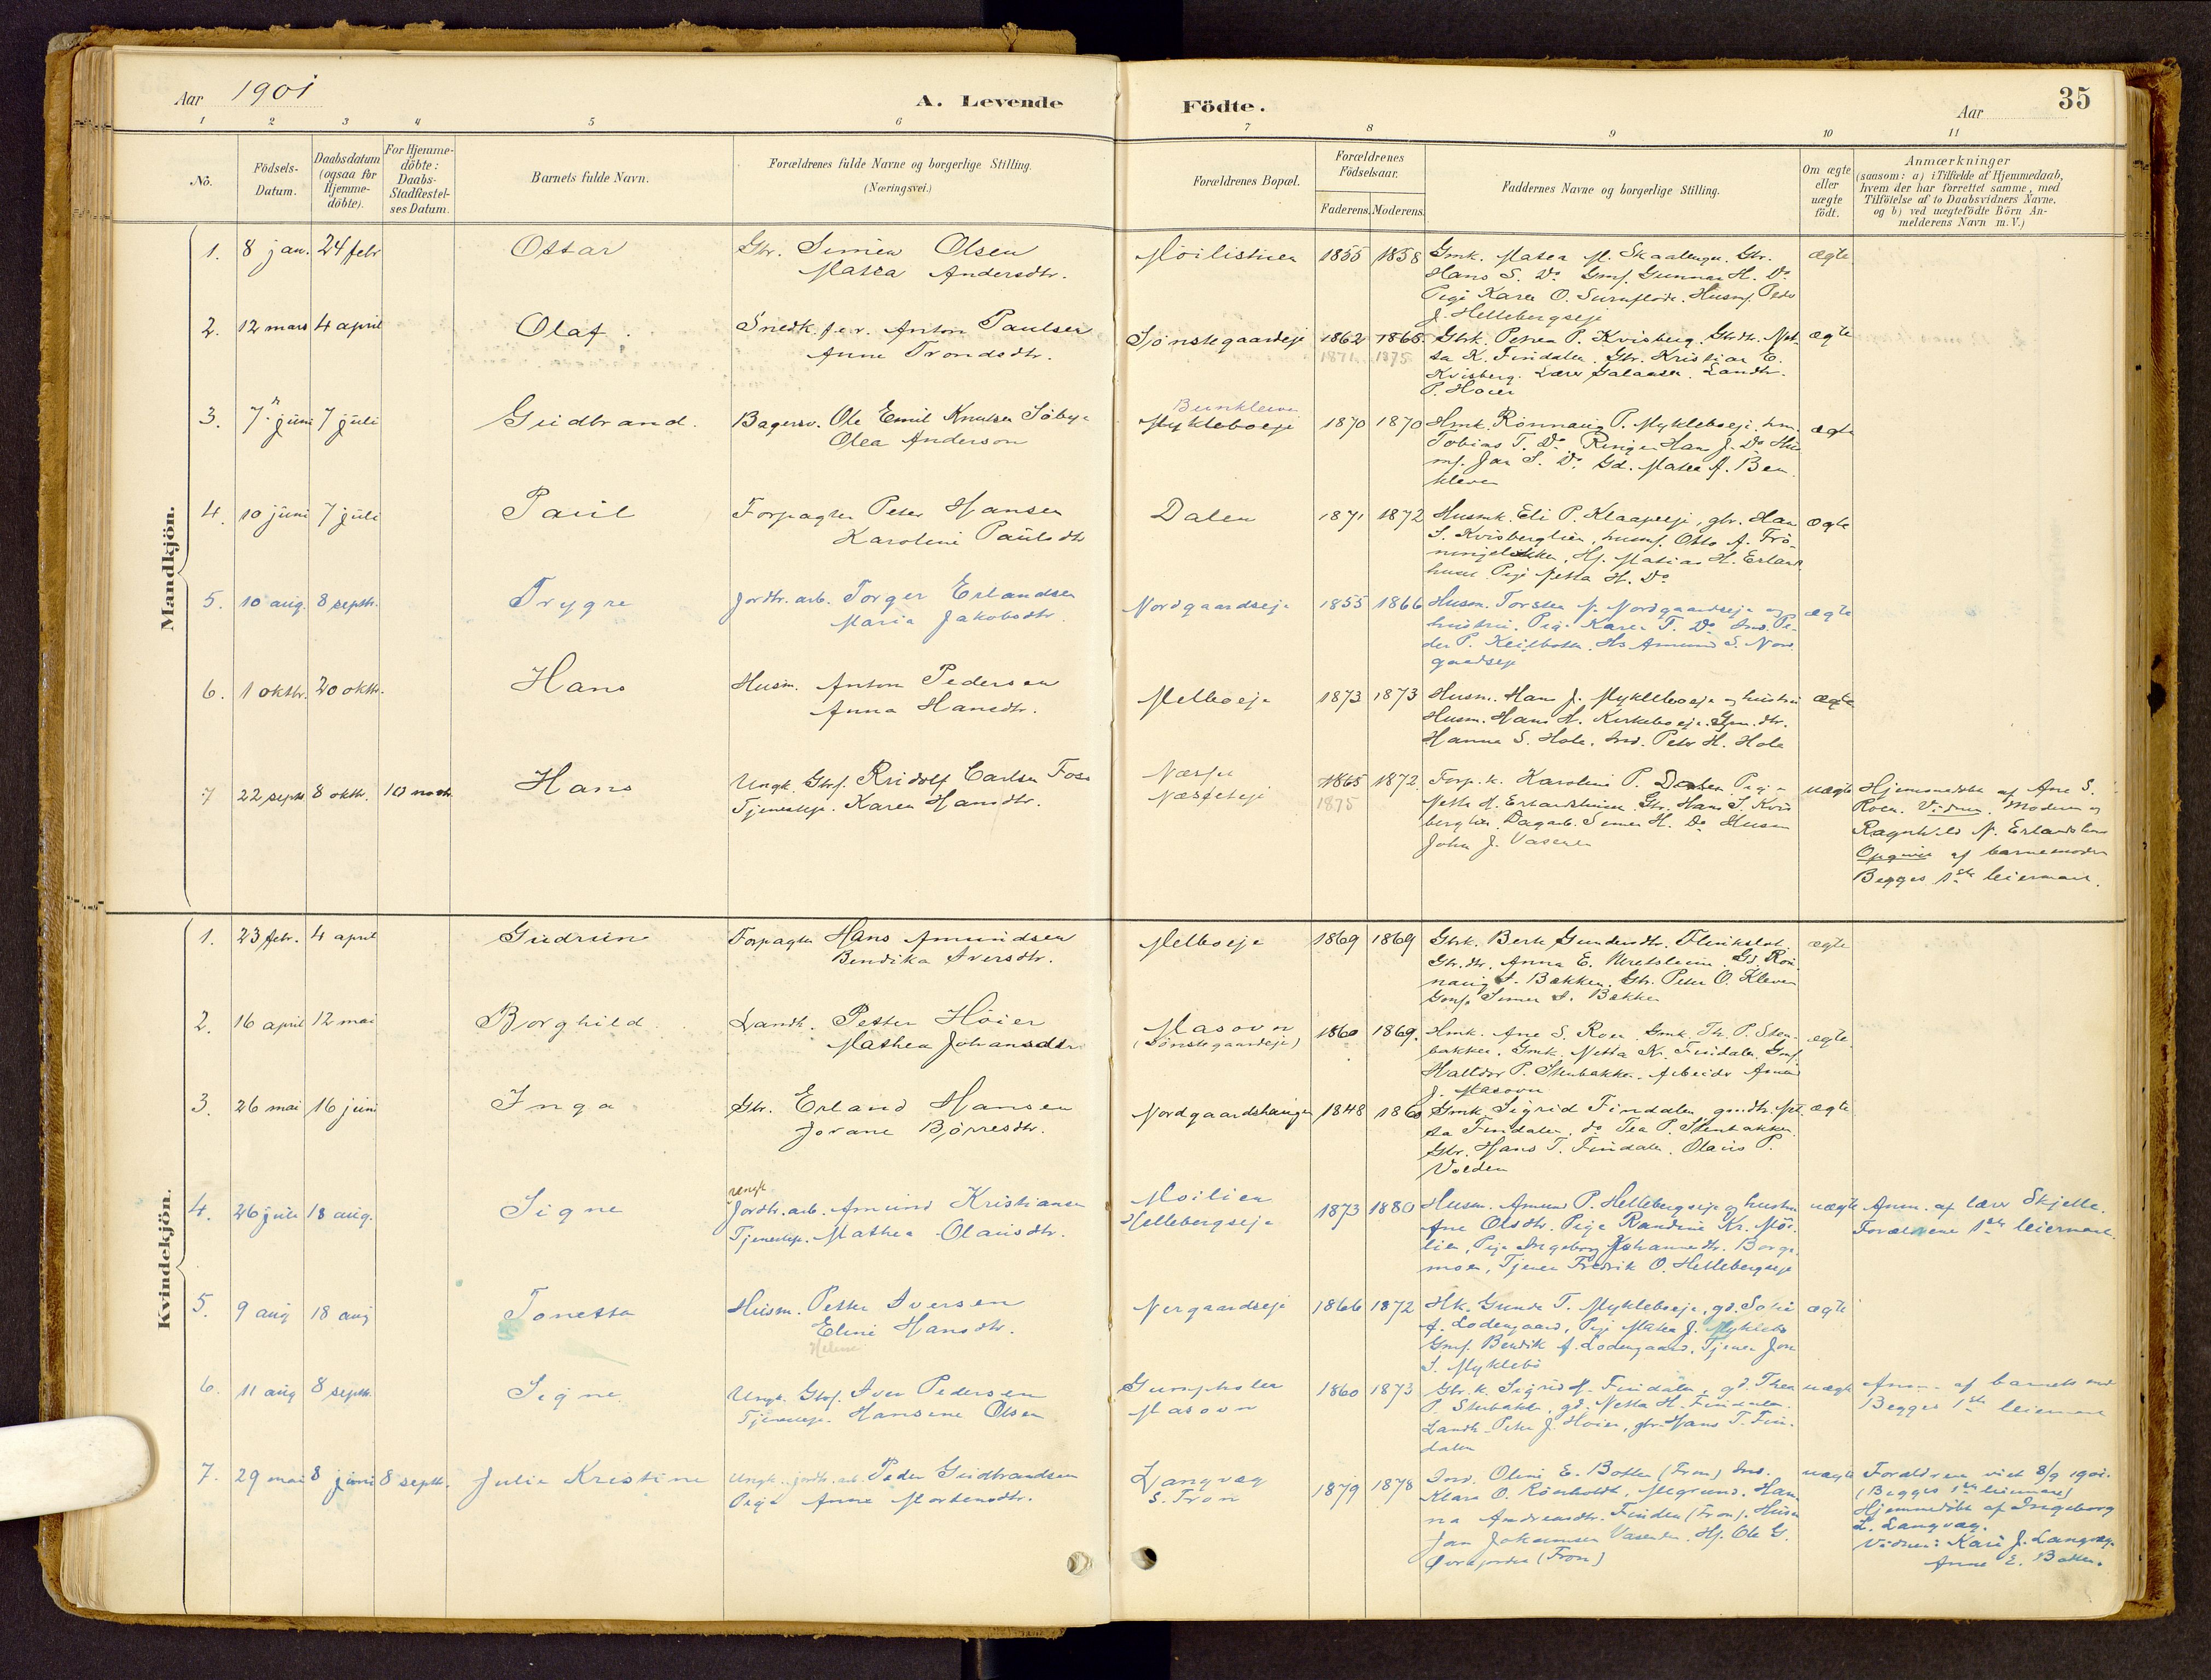 Aar 1901
A. Levende Födte.
Aar
35
1 2 3 4 5 6 7 8 9 10 11
No.
Födsels-
Datum.
Daabsdatum
(ogsaa for
Hjemme-
döbte).
For Hjemme-
döbte:
Daabs-
Stadfæstel-
ses Datum.
Barnets fulde Navn.
Forældrenes fulde Navne og borgerlige Stilling.
(Næringsvei.)
Forældrenes Bopæl.
Forældrenes
Födselsaar.
Faderens. Moderens.
Faddernes Navne og borgerlige Stilling.
Om ægte
eller
uægte
födt.
Anmærkninger
(saasom: a) i Tilfælde af Hjemmedaab,
hvem der har forrettet samme, med
Tilföielse af to Daabsvidners Navne.
og b) ved uægtefödte Börn An-
melderens Navn m. V.)
Mandkjön.
1. 8 jan. 24 febr Ottar
Gbr. Simen Olsen
Matea Andersdtr.
Moilistuen 1855 1858
Gmk. Matea M. Skaalenge. Gbr.
Hans S. Do Gmf. Gunnar H. Do
Pige Karen O. Husmf. Peder
J. Hellebergseje
ægte
2. 12 mars 4 april Olaf.
Snedk. Anton Paulsen
Anne Trondsdtr.
Sönstegaardeje 1862 1865
1871 1875
Gbrk. Petrea P. Kvisberg. Gbrdtr. Net-
ta K. Findalen. Gbr. Kristian E.
Kvisberg. Lærer Galaasen. Landh.
P. Hoier
ægte
3. 7. juni 7 juli Gudbrand.
Bagersv. Ole Emil Knutsen
Olea Anderson
Bunkleven
Mykleboeje 1870 1870
Hmk. Rønnaug P. Mykleboeje. hm.
Tobias T. Do Ringer Hans J. Do Hus
mf. Jan S. Do Gd. Matea A. Bun
kleven
ægte
4. 10 juni 7 juli Paul
Forpagter Peter Hansen
Karoline Paulsdtr
Dalen 1871 1872
Husmk. Eli P. Klaapeeje, gbr. Hans
S. Kvisberglien, husmf. Otto A. Frö-
Hf. Matias H. Erlands
husen Pige Netta H. Do
ægte
5. 10 aug. 8 septbr. Trygve
Jordbr. arb. Torger Erlandsen
Maria Jakobsdtr.
Nordgaardseje 1855 1866
Husm. Torsten N. Nordgaardseje og
hustru. Pige Karen T. Do Ind. Pe-
der P. Amund S. Nord
gaardseje
ægte
6. 1 oktbr. 20 oktbr. Hans
Husm. Anton Pedersen
Anna Hansdtr.
Melboeje 1873 1873
Husm. Hans J. Mykleboeje og hustru
Husm. Hans H. Kirkeboeje. dtr.
Hanna S. Hole. Ind. Peter H. Hole
ægte
7 22 septbr 8 oktbr. 10 novbr. Hans
Ungk. Gbsf. Rudolf Carlsen Foss
Tjenestep. Karen Hansdtr.
Næsset
Næsseteje 1865 1872
1875
Forp.k. Karoline P. Dalen Pige
Netta H. Erlandshusen Gbr. Hans S. Kvis
berglien. Dagarb. Simen H. Do Husm
John J. Vasenden
uægte
Hjemmedöbt af Ane S.
Roen. Vidner: Moderen og
Ragnhild N.
Opgivet af barnemoder
Begges 1ste leiermaal.
Kvindekjön.
1. 23 febr. 4 april Gudrun
Forpagter Hans Amundsen
Bendika Iversdtr.
Melboeje 1869 1869
Gbrk. Berte Gundersdtr.
Gbr.dtr. Anna E. Gd. Rön-
naug I. Bakken. Gbr. Peter O. Kleven
Gmf. Simen I. Bakken
ægte
2. 16 april 12 mai Borghild
Landh. Petter Höier
Mathea Johansdtr
Masovn
(Sönstegaardeje) 1860 1869.
Hmk. Ane S. Roen. Gmk. Th. P. Sten-
bakken. Gmk. Netta Kr. Findalen. Gmf.
Halldor P. Stenbakken. Arbeider
J. Masovn
ægte
3. 26 mai 16 juni Inga
Gbr. Erland Hansen
Jorane Björnsdtr.
Nordgaardshaugen 1848 1860
Gmk Sigrid Findalen, gmdtr. Net-
ta Findalen, do Tea P. Stenbakken
Gbr. Hans T. Findalen. Olaus P.
Volden
ægte
4. 26 juli 18 aug. Signe
ungk
Jordbr. arb. Amund Kristiansen
Tjenestep. Mathea Olausdtr.
Moilien
Hellebergseje 1873 1880
Husm. Amund P. Hellebergseje og hustru
Ane Olsdtr. Pige Randine Kr. Moi-
lien, Pige Ingeborg Johannesdtr. Borge-
moen, Tjener Fredrik O. Hellebergseje
uægte
Anm. af lærer Skjelle.
Forældrene 1ste leiermaal.
5. 9 aug 18 aug Tonetta
Husm. Petter Iversen
Eline Hansdtr.
Helene
Nergaardseje 1866 1872
Hk. Gunda T. Mykleboeje, gd. Sofie
A. Lodengaard, Pige Matea J. Myklebo
Gmf. Bendik A. Lodengaard. Tjener Jon
S. Myklebö
ægte
6. 11 aug 8 septbr. Signe
Ungk. Gbsf. Iver Pedersen
Tjenestepi. Hansine Olsen
Gumpholen
Masovn 1860 1873
Gbr.k. Sigrid H. Findalen, gd. Thea
P. Stenbakk, gd. Netta H. Findalen.
Landh. Peter J. Hoier, gbr. Hans T. Fin-
dalen
uægte
Anm. af barnets mor
Begges 1ste leiermaal
7. 29 mai 8 juni 8 septbr. Julie Kristine
Ungk. jordbr. arb. Peder Gudbrandsen
Pige Anne Mortensdtr.
Langvæg
S. Fron 1879 1878
Ind. Oline E. Botten (Fron) Ind.
Klara O. Rönholdt, Megrund. Han-
na Andreasdtr. Finden (Fron). Husm
Jan Johannsen Vasenden. Hf. Ole G.
(Fron)
uægte
Forældrene viet 8/9 1901.
(Begges 1ste leiermaal)
Hjemmedöbt af Ingeborg
L. Langvæg.
Vidner: Kari J. Langvæg.
Anne E. Botten.